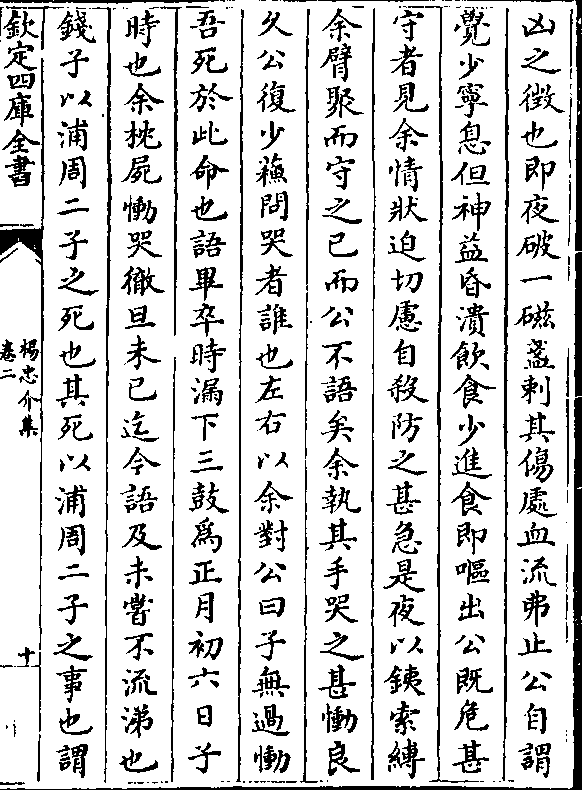 凶之徴也即夜破一磁盞刺其傷處血流弗止公自謂
覺少寧息但神益昏潰飲食少進食即嘔出公既危甚
守者見余情狀迫切慮自殺防之甚急是夜以鐵索縛
余臂聚而守之已而公不語矣余執其手哭之甚慟良
久公復少蘓問哭者誰也左右以余對公曰子無過慟
吾死於此命也語畢卒時漏下三鼓為正月初六日子
時也余枕屍慟哭徹旦未已迄今語及未嘗不流涕也
錢子以浦周二子之死也其死以浦周二子之事也謂
欽定四庫全書
楊忠介集
卷二
十